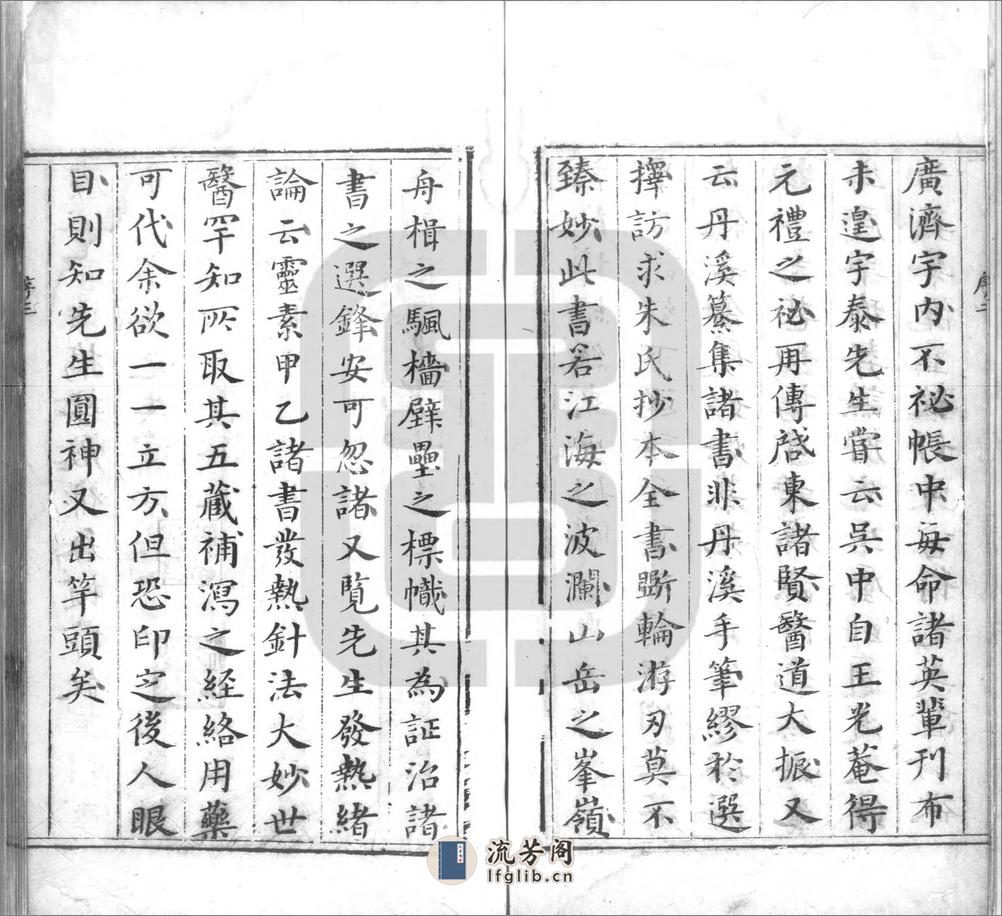 廣濟宇內不祕帳中每命諸英輩刊布
未遑宇泰先生嘗云吳中自王光菴得
元禮之祕再傳啓東諸賢醫道大振又
云丹溪纂集諸書非丹溪手筆繆於選
擇訪求朱氏抄本全書斵輪游刃莫不
臻妙此書若江海之波瀾山岳之峯嶺
序二
舟楫之颿檣壁壘之標幟其為証治諸
書之選鋒安可忽諸又覧先生發熱緒
論云靈素甲乙諸書發熱針法大妙世
醫罕知所取其五藏補瀉之経絡用藥
可代余欲一一立方但恐印定後人眼
目則知先生圓神又出竿頭矣
序三
流芳阁
lfglib.cn